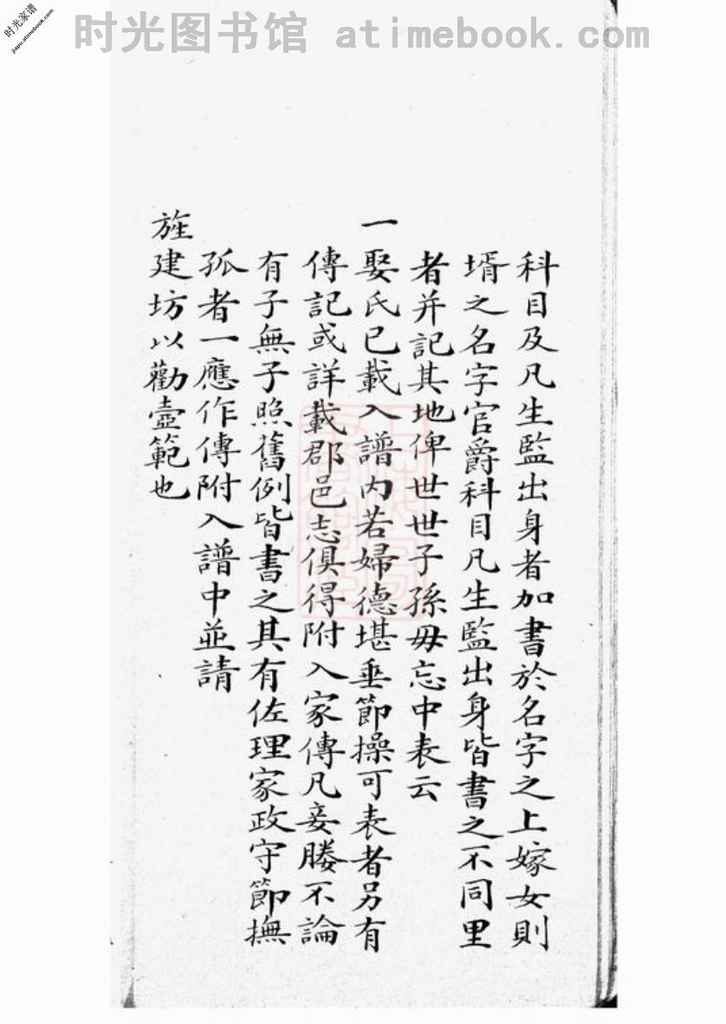 时光图书馆 atimebook.com
时光家谱
jiapu.atimebook.com
科目及凡生監出身者加書於名字之上嫁女則
壻之名字官爵科目凡生監出身皆書之不同里
者并記其地俾世世子孫毋忘中表云
一娶氏已載入譜內若婦德堪垂節操可表者另有
傳記或詳載郡邑志俱得附入家傳凡妾媵不論
有子無子照舊例皆書之其有佐理家政守節撫
孤者一應作傳附入譜中並請
旌建坊以勸壼範也